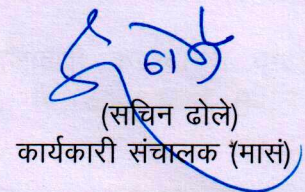 (सचिन ढोले)
कार्यकारी संचालक (मासं)